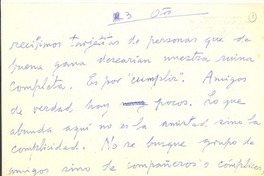 3 Oto
recibimos tarjetitas de personas que de
buena gana desearían nuestra ruina
completa. Es por "cumplir". Amigos
de verdad hay pocos. Lo que
abunda aquí no es la amistad sino la
complicidad. No se busque grupo de
amigos sino de compañeros o cómplices,